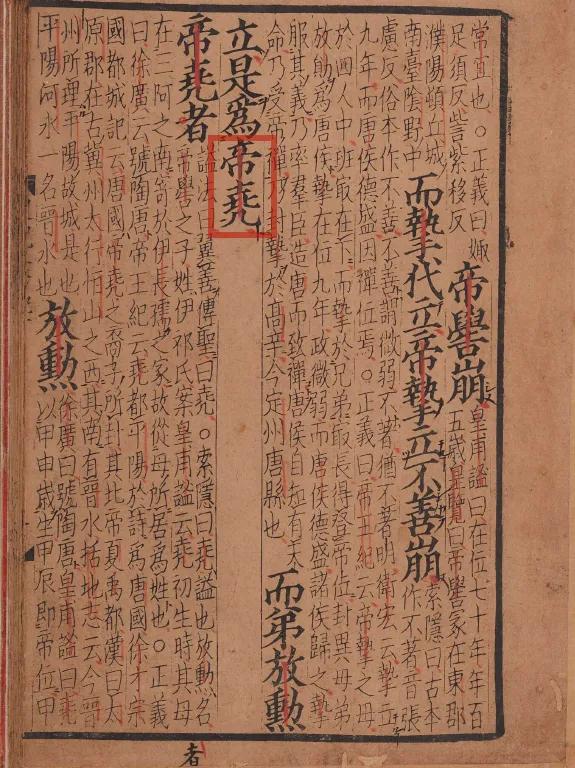 常宜也○正義曰娵
足須反訾紫移反
帝嚳崩
皇甫謐曰在位七十年年百
五歲皇覽曰帝嚳冢在東郡
濮陽頓丘城
南臺陰野中
而摯代立帝摯立不善崩
索隱曰古本
作不著音張
慮反俗本作不善不善謂微弱不著猶不著明衛宏云摯立
九年而唐侯德盛因禪位焉○正義曰帝王紀云帝摯之母
於四人中班最在下而摯於兄弟最長得登帝位封異母弟
放勛為唐侯摯在位九年政微弱而唐侯德盛諸侯歸之摯
服其義乃率羣臣造唐而致禪唐侯自知有天
命乃受帝禪乃封摯於高辛今定州唐縣也
而弟放勲
立是為帝堯
帝堯者
諡法曰翼善傳聖曰堯○索隱曰堯諡也放勲名
帝嚳之子姓伊祁氏案皇甫謐云堯初生時其母
在三阿之南寄於伊長孺之家故從母所居為姓也○正義
曰徐廣云號陶唐帝王紀云堯都平陽於詩為唐國徐才宗
國都城記云唐國帝堯之裔子所封其北帝夏禹都漢曰太
原郡在古冀州太行恒山之西其南有晉水括地志云今晉
州所理平陽故城是也
平陽河水一名晉水也
放勲
徐廣曰號陶唐皇甫謐曰堯
以甲申歲生甲辰即帝位甲
者